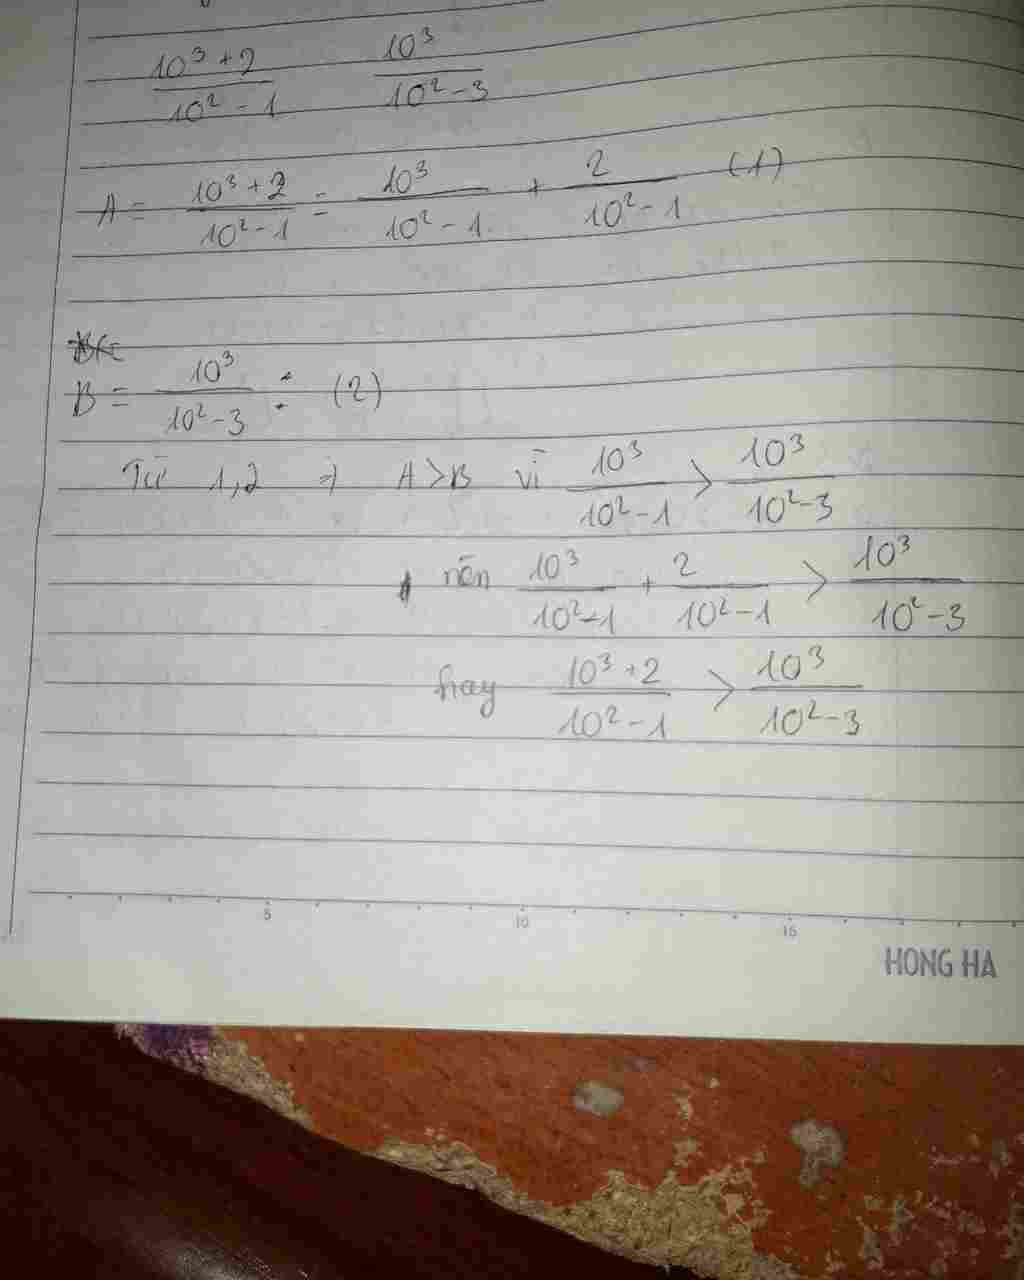 10³ + 2 / 10² - 1    10³ / 10² - 3
A = 10³ + 2 / 10² - 1 = 10³ / 10² - 1 + 2 / 10² - 1 (1)
B = 10³ / 10² - 3 : (2)
Từ 1,2 ⇒ A > B vì 10³ / 10² - 1 > 10³ / 10² - 3
nên 10³ / 10² - 1 + 2 / 10² - 1 > 10³ / 10² - 3
hay 10³ + 2 / 10² - 1 > 10³ / 10² - 3
5 10 15
HONG HA